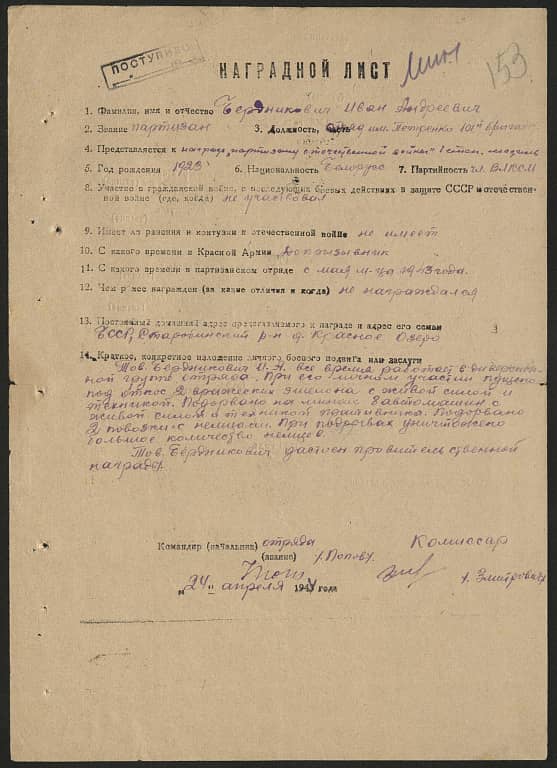 ПОСТУПИЛО
153
НАГРАДНОЙ ЛИСТ
1. Фамилия, имя и отчество Бердникович Иван Андреевич
2. Звание партизан 3. Должность, часть отряд им. Петренко 101й бригады
4. Представляется к награде „партизану отечественной войны" 1 степ. медаль
5. Год рождения 1923 6. Национальность Белорус 7. Партийность чл. ВЛКСМ
8. Участие в гражданской войне, в последующих боевых действиях в защите СССР и отечествен-
ной войне (где, когда) не участвовал
9. Имеет ли ранения и контузии в отечественной войне не имеет
10. С какого времени в Красной Армии Допризывник
11. С какого времени в партизанском отряде с мая м-ца 1943 года.
12. Чем ранее награжден (за какие отличия и когда) не награждался
13. Постоянный домашний адрес представляемого к награде и адрес его семьи
БССР, Старобинский р-н д. Красное Озеро
14. Краткое, конкретное изложение личного боевого подвига или заслуги
Тов. Бердникович И.А. все время работает в диверсион-
ной группе отряда. При его личном участии пущено
под откос 2 вражеских эшелона с живой силой и
техникой. Подорвано на минах 8 автомашин с
живой силой и техникой противника. Подорвано
2 повозки с немцами. При подрывах уничтожено
большое количество немцев.
Тов. Бердникович достоен правительственной
награды.
Командир (начальник) отряда Комиссар
(звание)
„24" апреля 1944 года